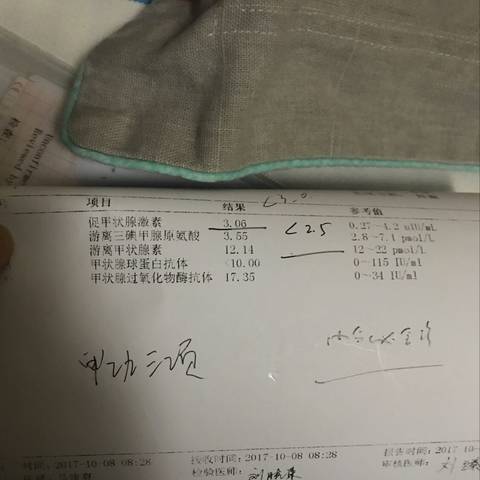 项目 结果 <3.0 参考值
促甲状腺激素 3.06 0.27~4.2 uIU/mL
游离三碘甲腺原氨酸 3.55 <2.5 2.8~7.1 pmol/L
游离甲状腺素 12.14 12~22 pmol/L
甲状腺球蛋白抗体 <10.00 0~115 IU/ml
甲状腺过氧化物酶抗体 17.35 0~34 IU/ml
甲功三项
时间: 2017-10-08 08:28 接收时间: 2017-10-08 08:28 报告时间: 2017-10-0
检验医师: 审核医师: 刘